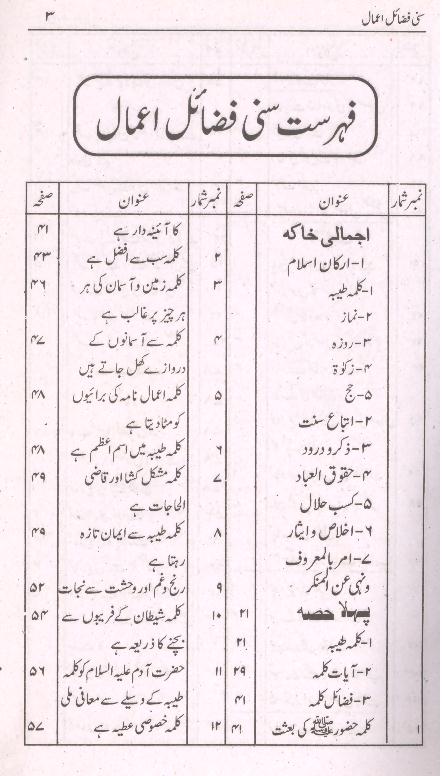 سنی فضائل اعمال ۳
فہرست سنی فضائل اعمال
نمبر شمار عنوان صفحہ
اجمالی خاکہ
۱- ارکان اسلام
۱- کلمہ طیبہ
۲- نماز
۳- روزہ
۴- زکوٰۃ
۵- حج
۲- اتباع سنت
۳- ذکر و درود
۴- حقوق العباد
۵- کسب حلال
۶- اخلاص و ایثار
۷- امر بالمعروف
ونہی عن المنکر
پہلا حصہ ۲۱
۱- کلمہ طیبہ ۲۱
۲- آیات کلمہ ۲۹
۳- فضائل کلمہ ۴۱
۱ کلمہ حضور ﷺ کی بعثت ۴۱
نمبر شمار عنوان صفحہ
کا آئینہ دار ہے ۴۱
۲ کلمہ سب سے افضل ہے ۴۳
۳ کلمہ زمین و آسمان کی ہر ۴۶
ہر چیز پر غالب ہے
۴ کلمہ سے آسمانوں کے ۴۷
دروازے کھل جاتے ہیں
۵ کلمہ اعمال نامہ کی برائیوں ۴۸
کو مٹا دیتا ہے
۶ کلمہ طیبہ میں اسم اعظم ہے ۴۸
۷ کلمہ مشکل کشا اور قاضی ۴۹
الحاجات ہے
۸ کلمہ طیبہ سے ایمان تازہ ۴۹
رہتا ہے
۹ رنج و غم اور وحشت سے نجات ۵۲
۱۰ کلمہ شیطان کے فریبوں سے ۵۴
بچنے کا ذریعہ ہے
۱۱ حضرت آدم علیہ السلام کو کلمہ ۵۶
طیبہ کے وسیلے سے معافی ملی
۱۲ کلمہ خصوصی عطیہ ہے ۵۷